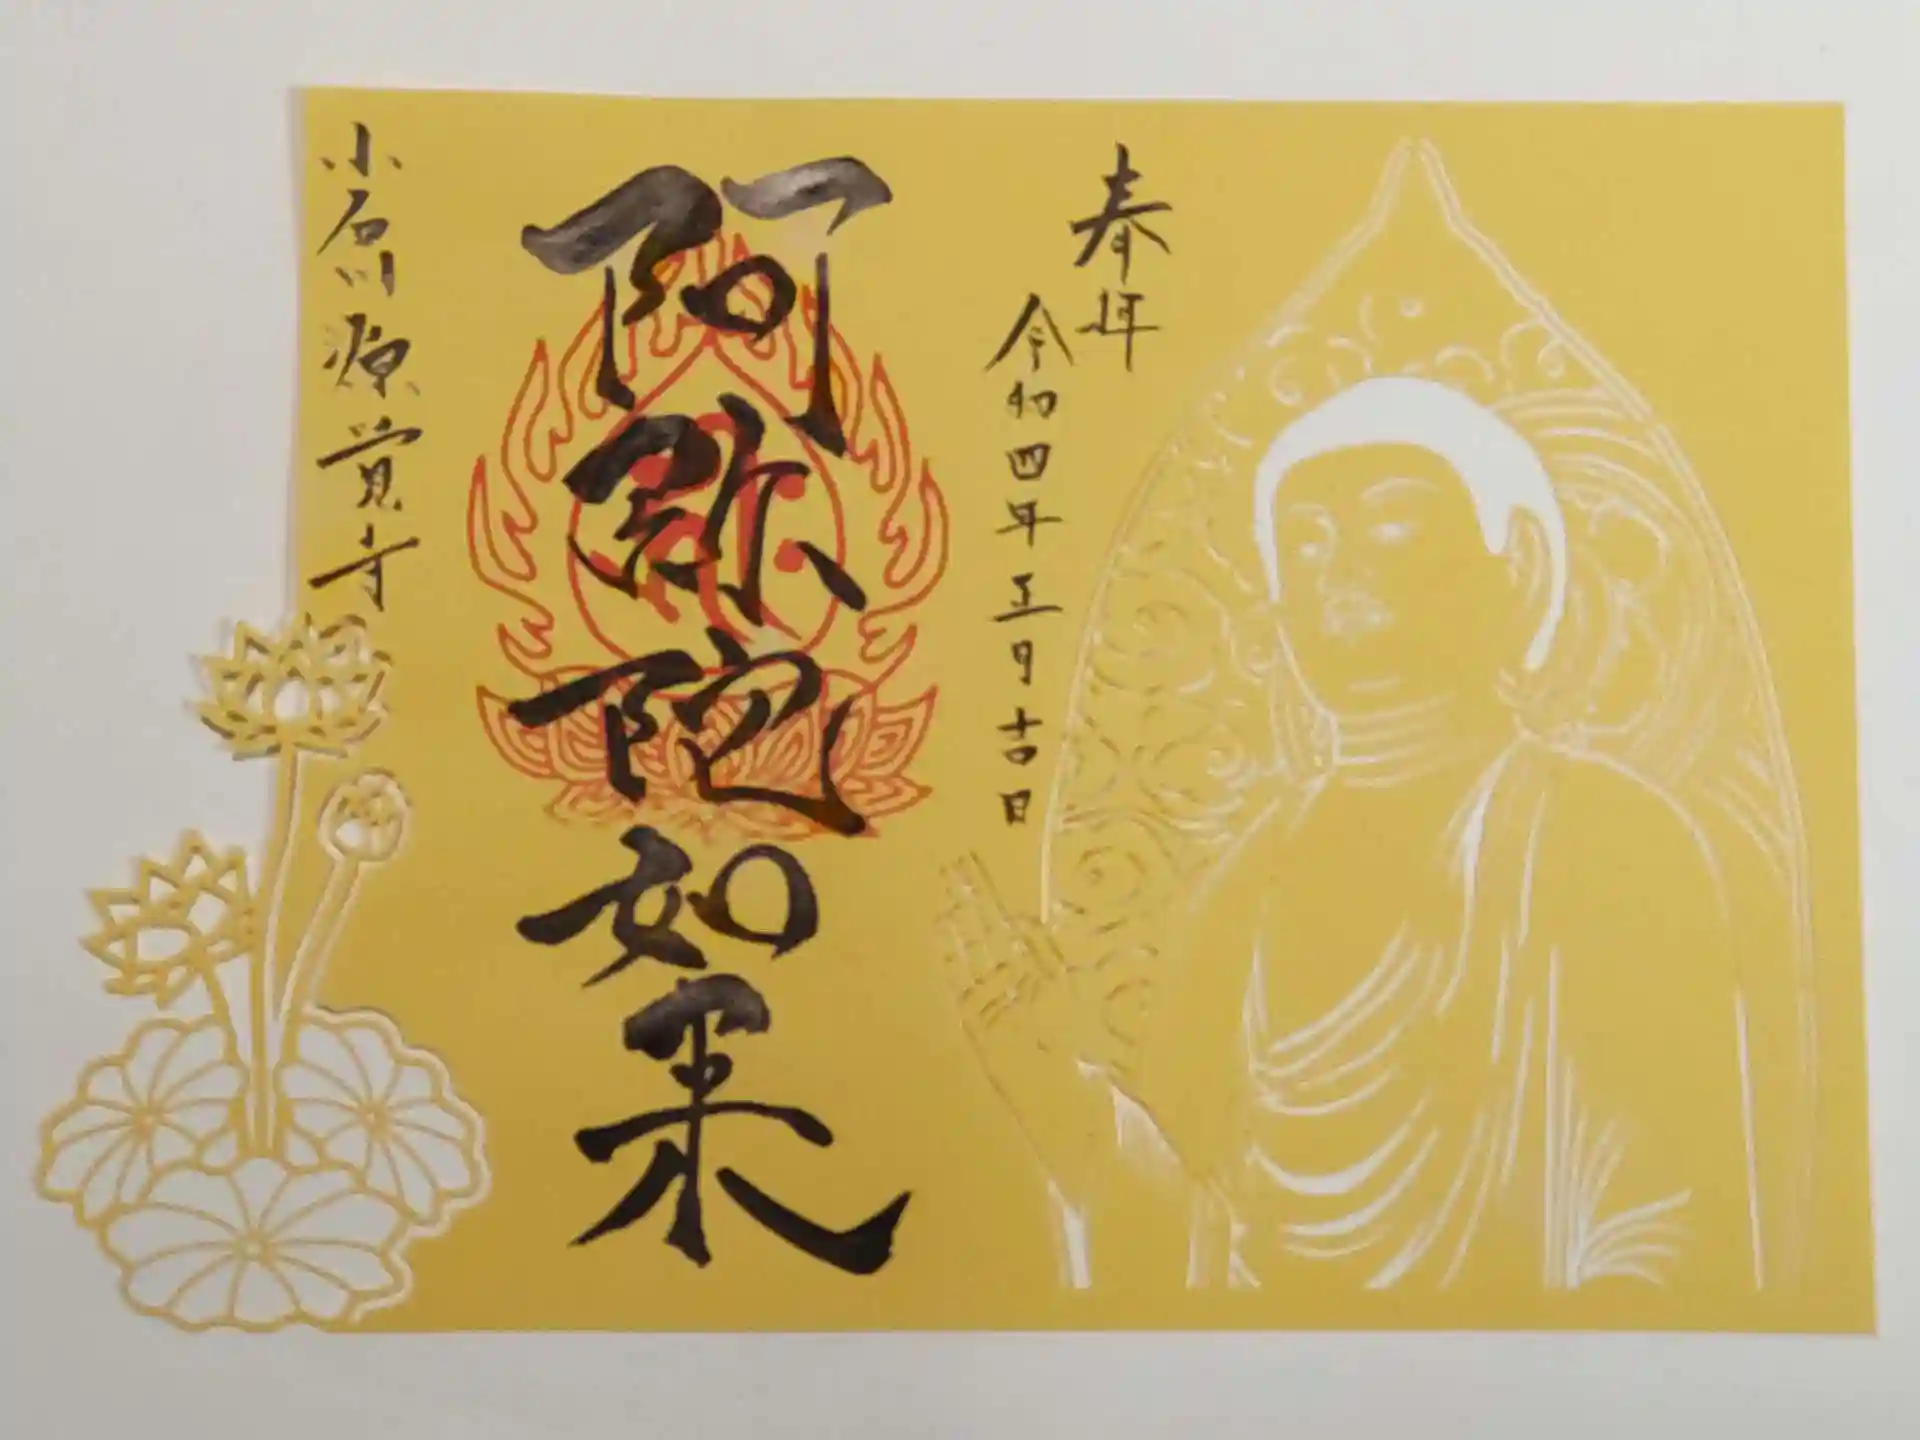 奉拝
令和四年正月吉日
阿弥陀如来
小石川源覚寺